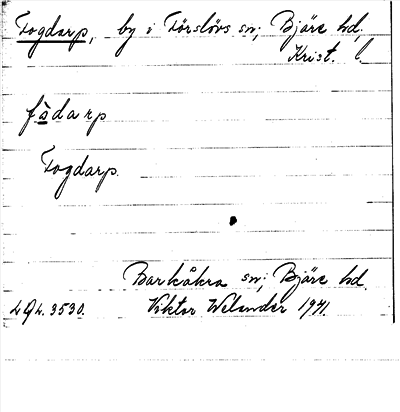 Fogdarp, by i Förslövs sn; Bjäre hd,
Krist. l.
fàdarp
Fogdarp.
Barkåkra sn; Bjäre hd.
Viktor Welander 1941.
3530.